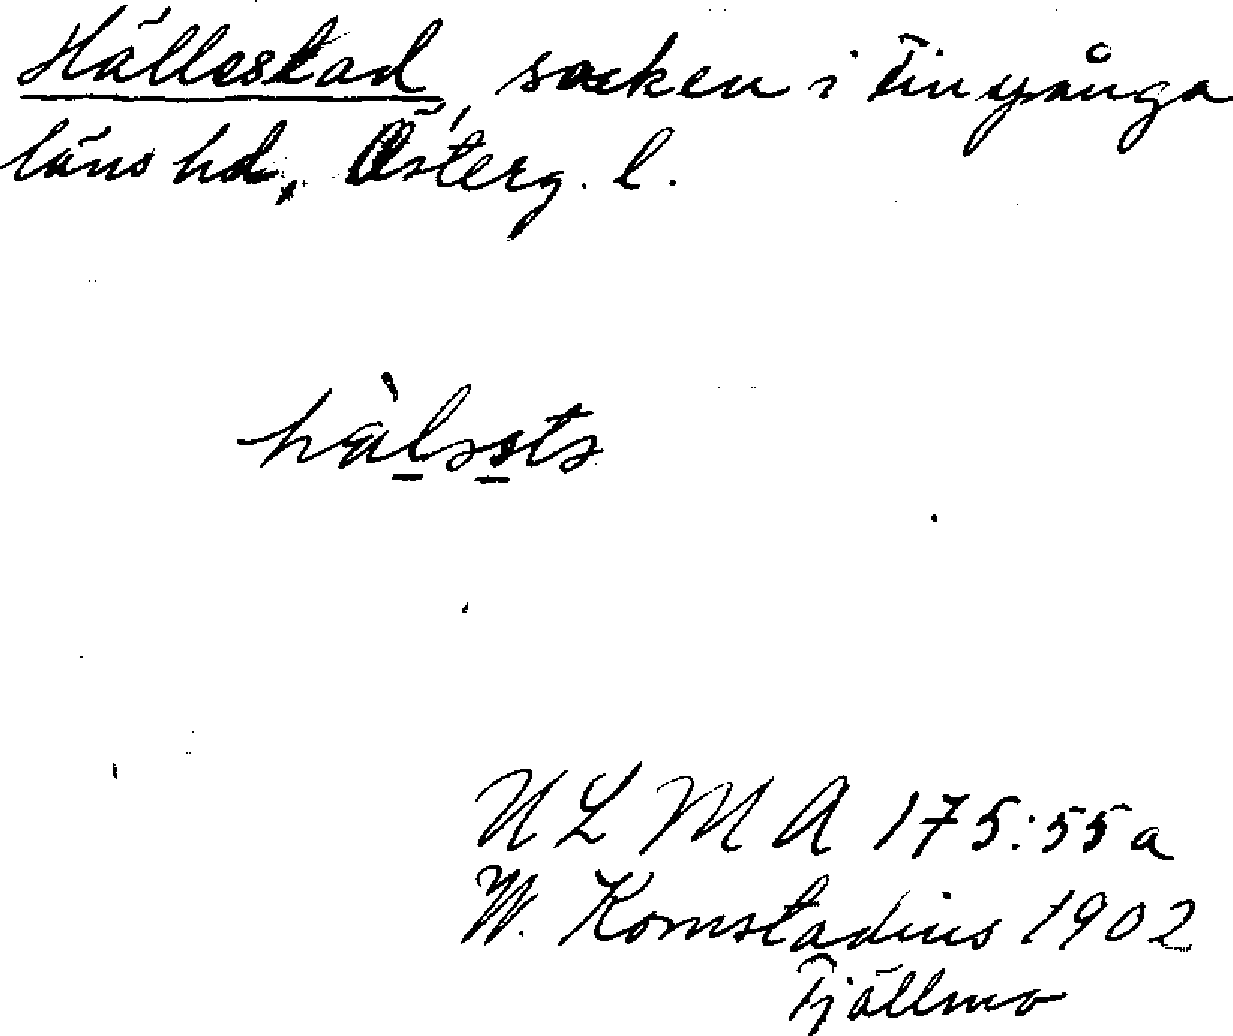 Hällestad, socken i Finspånga
läns hd, Österg. l.
hä̀lssts
ULMA 175:55a
W. Komstadius 1902
Tjällmo